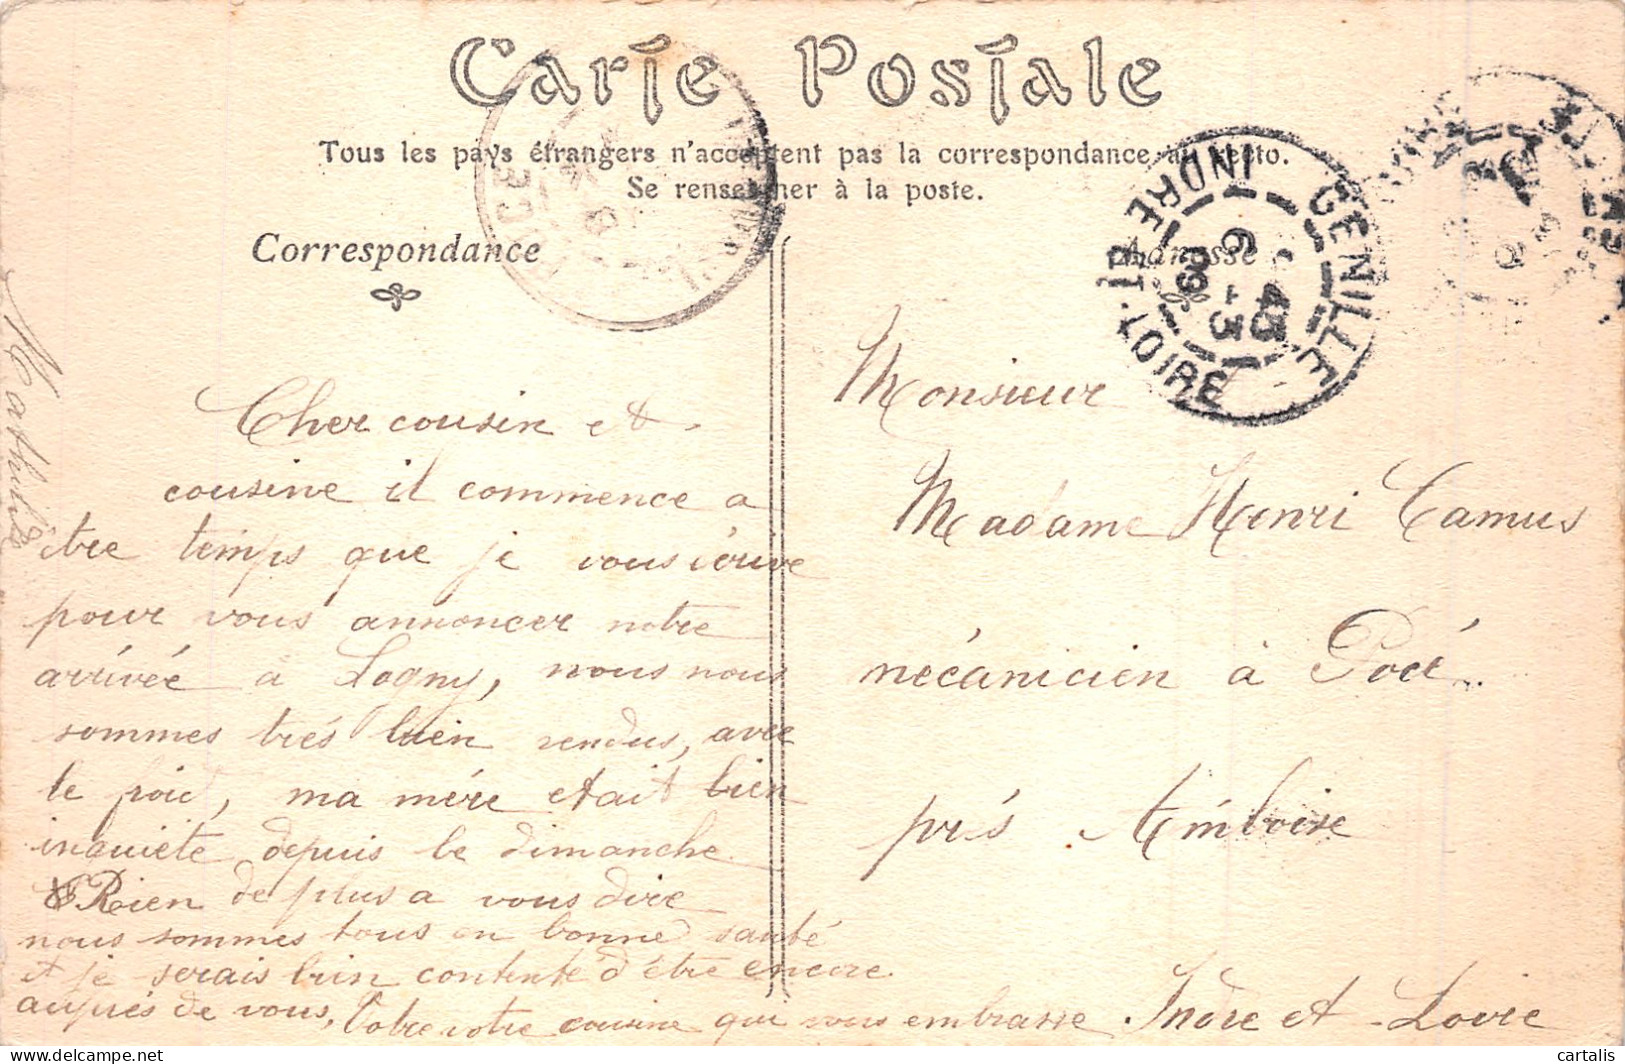 Carte Postale
Tous les pays étrangers n'acceptent pas la correspondance au recto.
Se renseigner à la poste.
Correspondance
Adresse
INDRE ET-LOIRE
GENILLÉ
6
13 45
09
Mathilde
Cher cousin et
cousine il commence a
être temps que je vous écrive
pour vous annoncer notre
arrivée a Logny, nous nous
sommes trés bien rendus, avec
le froid, ma mére etait bien
inquiéte depuis le dimanche
Rien de plus a vous dire
nous sommes tous en bonne santé
et je serais bien contente d'être encore
auprés de vous, Votre cousine qui vous embrasse
Monsieur
Madame Henri Camus
mécanicien à Pocé
prés Amboise
Indre et Loire
© cartalis